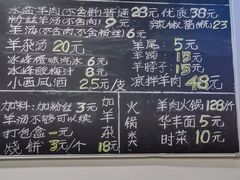 水盆羊肉(不含饼)普通28元 优质38元
羊杂汤
羊汤(不含粉丝)6元
羊杂汤20元
冰峰橙味汽水6元
冰峰酸梅汤6元
小西凤酒 2.5元/支
羊尾:5元
羊蹄:15元
羊脖子:15元
凉拌羊肉48元
加料:加粉丝3元
羊汤不够可以续
打包盒一元
烧饼3元/个18元
火锅类
羊肉火锅128/件
华丰面5元
时菜10元